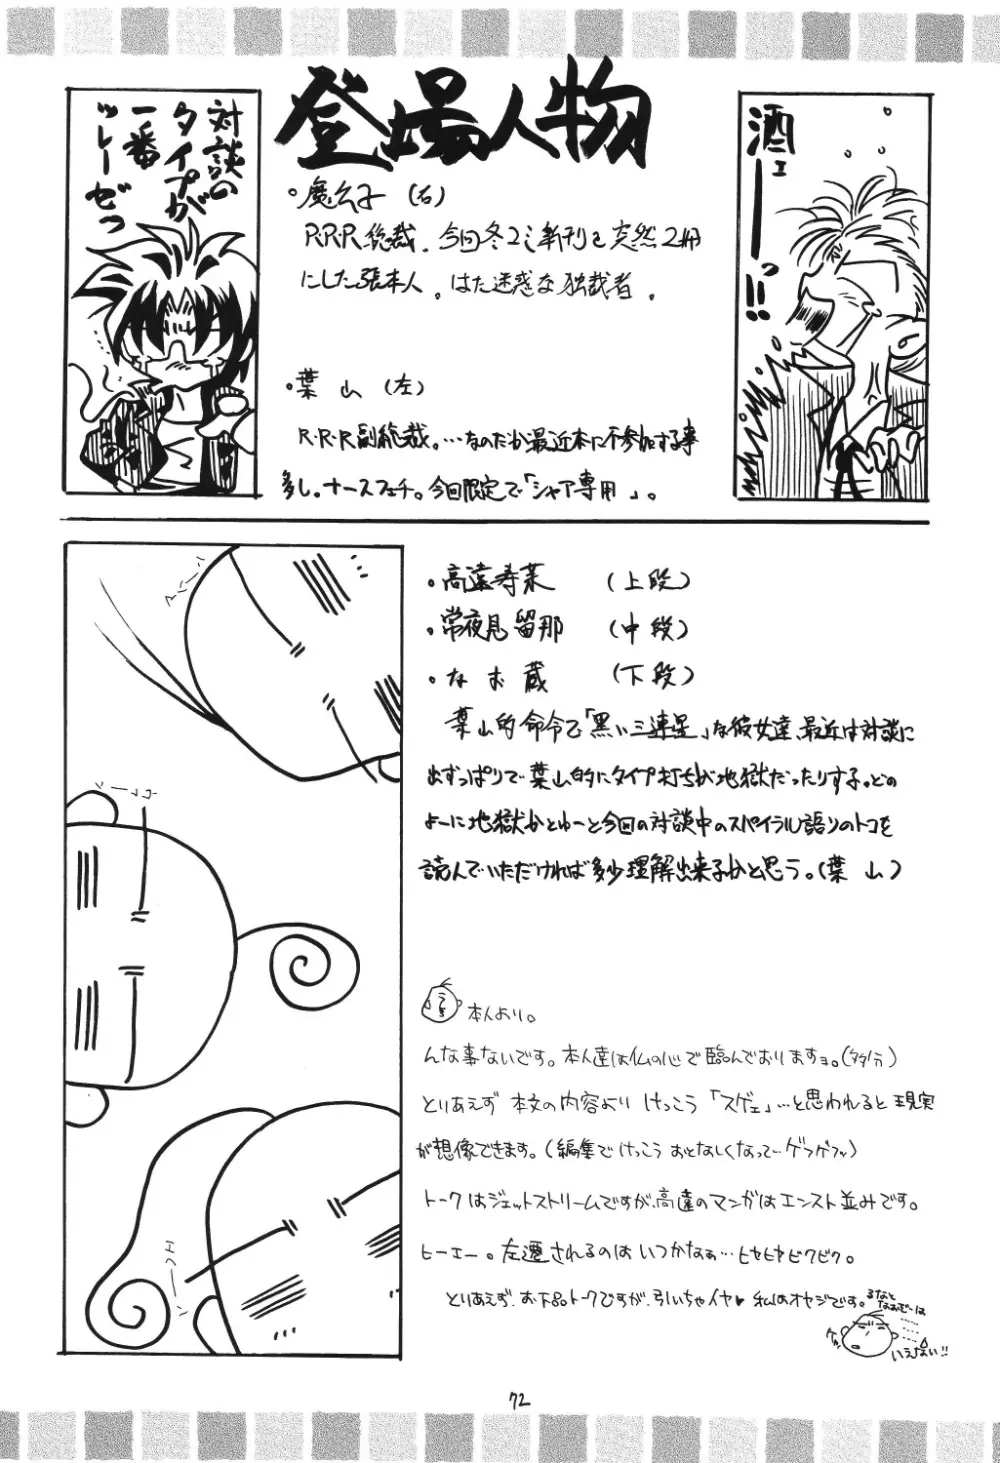 登場人物
酒ェーーっ!!
対談の
タイプが
一番
ツレーゼっ
・魔公子(右)
R・R・R総裁。今回冬コミ新刊を突然2冊
にした張本人。はた迷惑な独裁者。
・葉山(左)
R・R・R副総裁。…なのだが最近本に不参加する事
多し。ナースフェチ。今回限定で「シャア専用」。
・高遠寿葉 (上段)
・常夜見留那 (中段)
・なお蔵 (下段)
葉山的命令で「黒い三連星」な彼女達、最近は対談に
出ずっぱりで葉山的にタイプ打ちが地獄だったりする。どの
よーに地獄かとゆーと今回の対談中のスパイラル語りのトコを
読んでいただければ多少理解出来るかと思う。(葉山)
本人より。
んな事ないです。本人達は仏の心で臨んでおりますョ。(多分)
とりあえず 本文の内容より けっこう 「スゲェ」…と思われると 現実
が想像できます。(編集で けっこう おとなしくなって…ゲフゲフッ)
トークはジェットストリームですが、高遠のマンガは エンスト並みです。
ヒーエー。左遷されるのは いつかなぁ…ヒヤヒヤビクビク。
とりあえず、お下品トークですが、引いちゃイヤ♥ 私はオヤジです。
るなと
なおぞーは
……
いえない!!
72